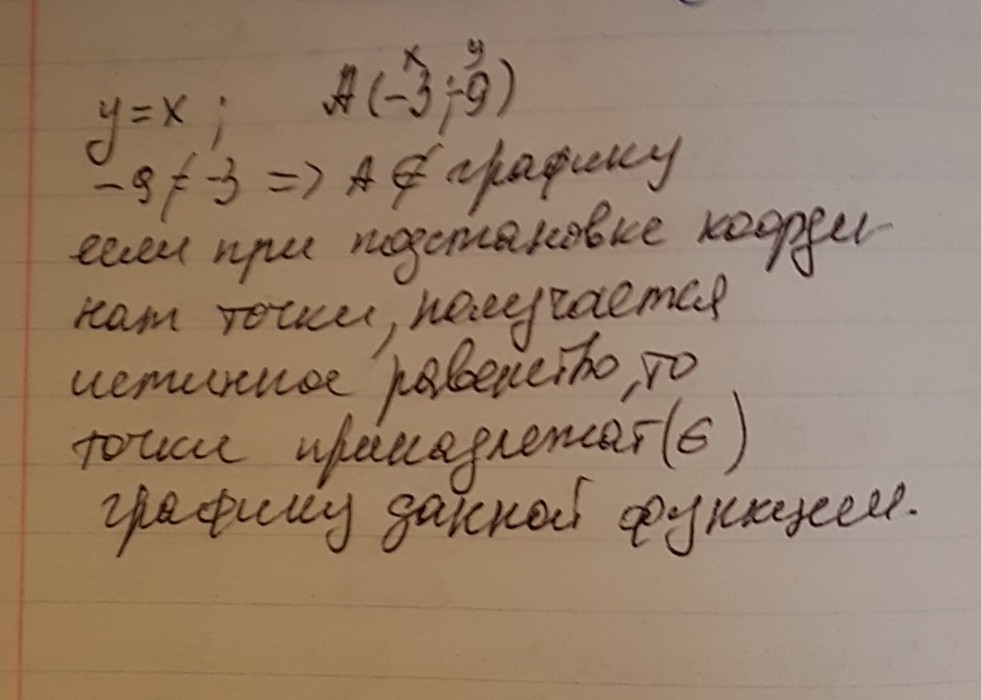 x y
y=x; A(-3;-9)
-9≠-3 => A∉ графику
если при подстановке коорди-
нат точки, получается
истинное равенство, то
точки принадлежат(∈)
графику данной функции.